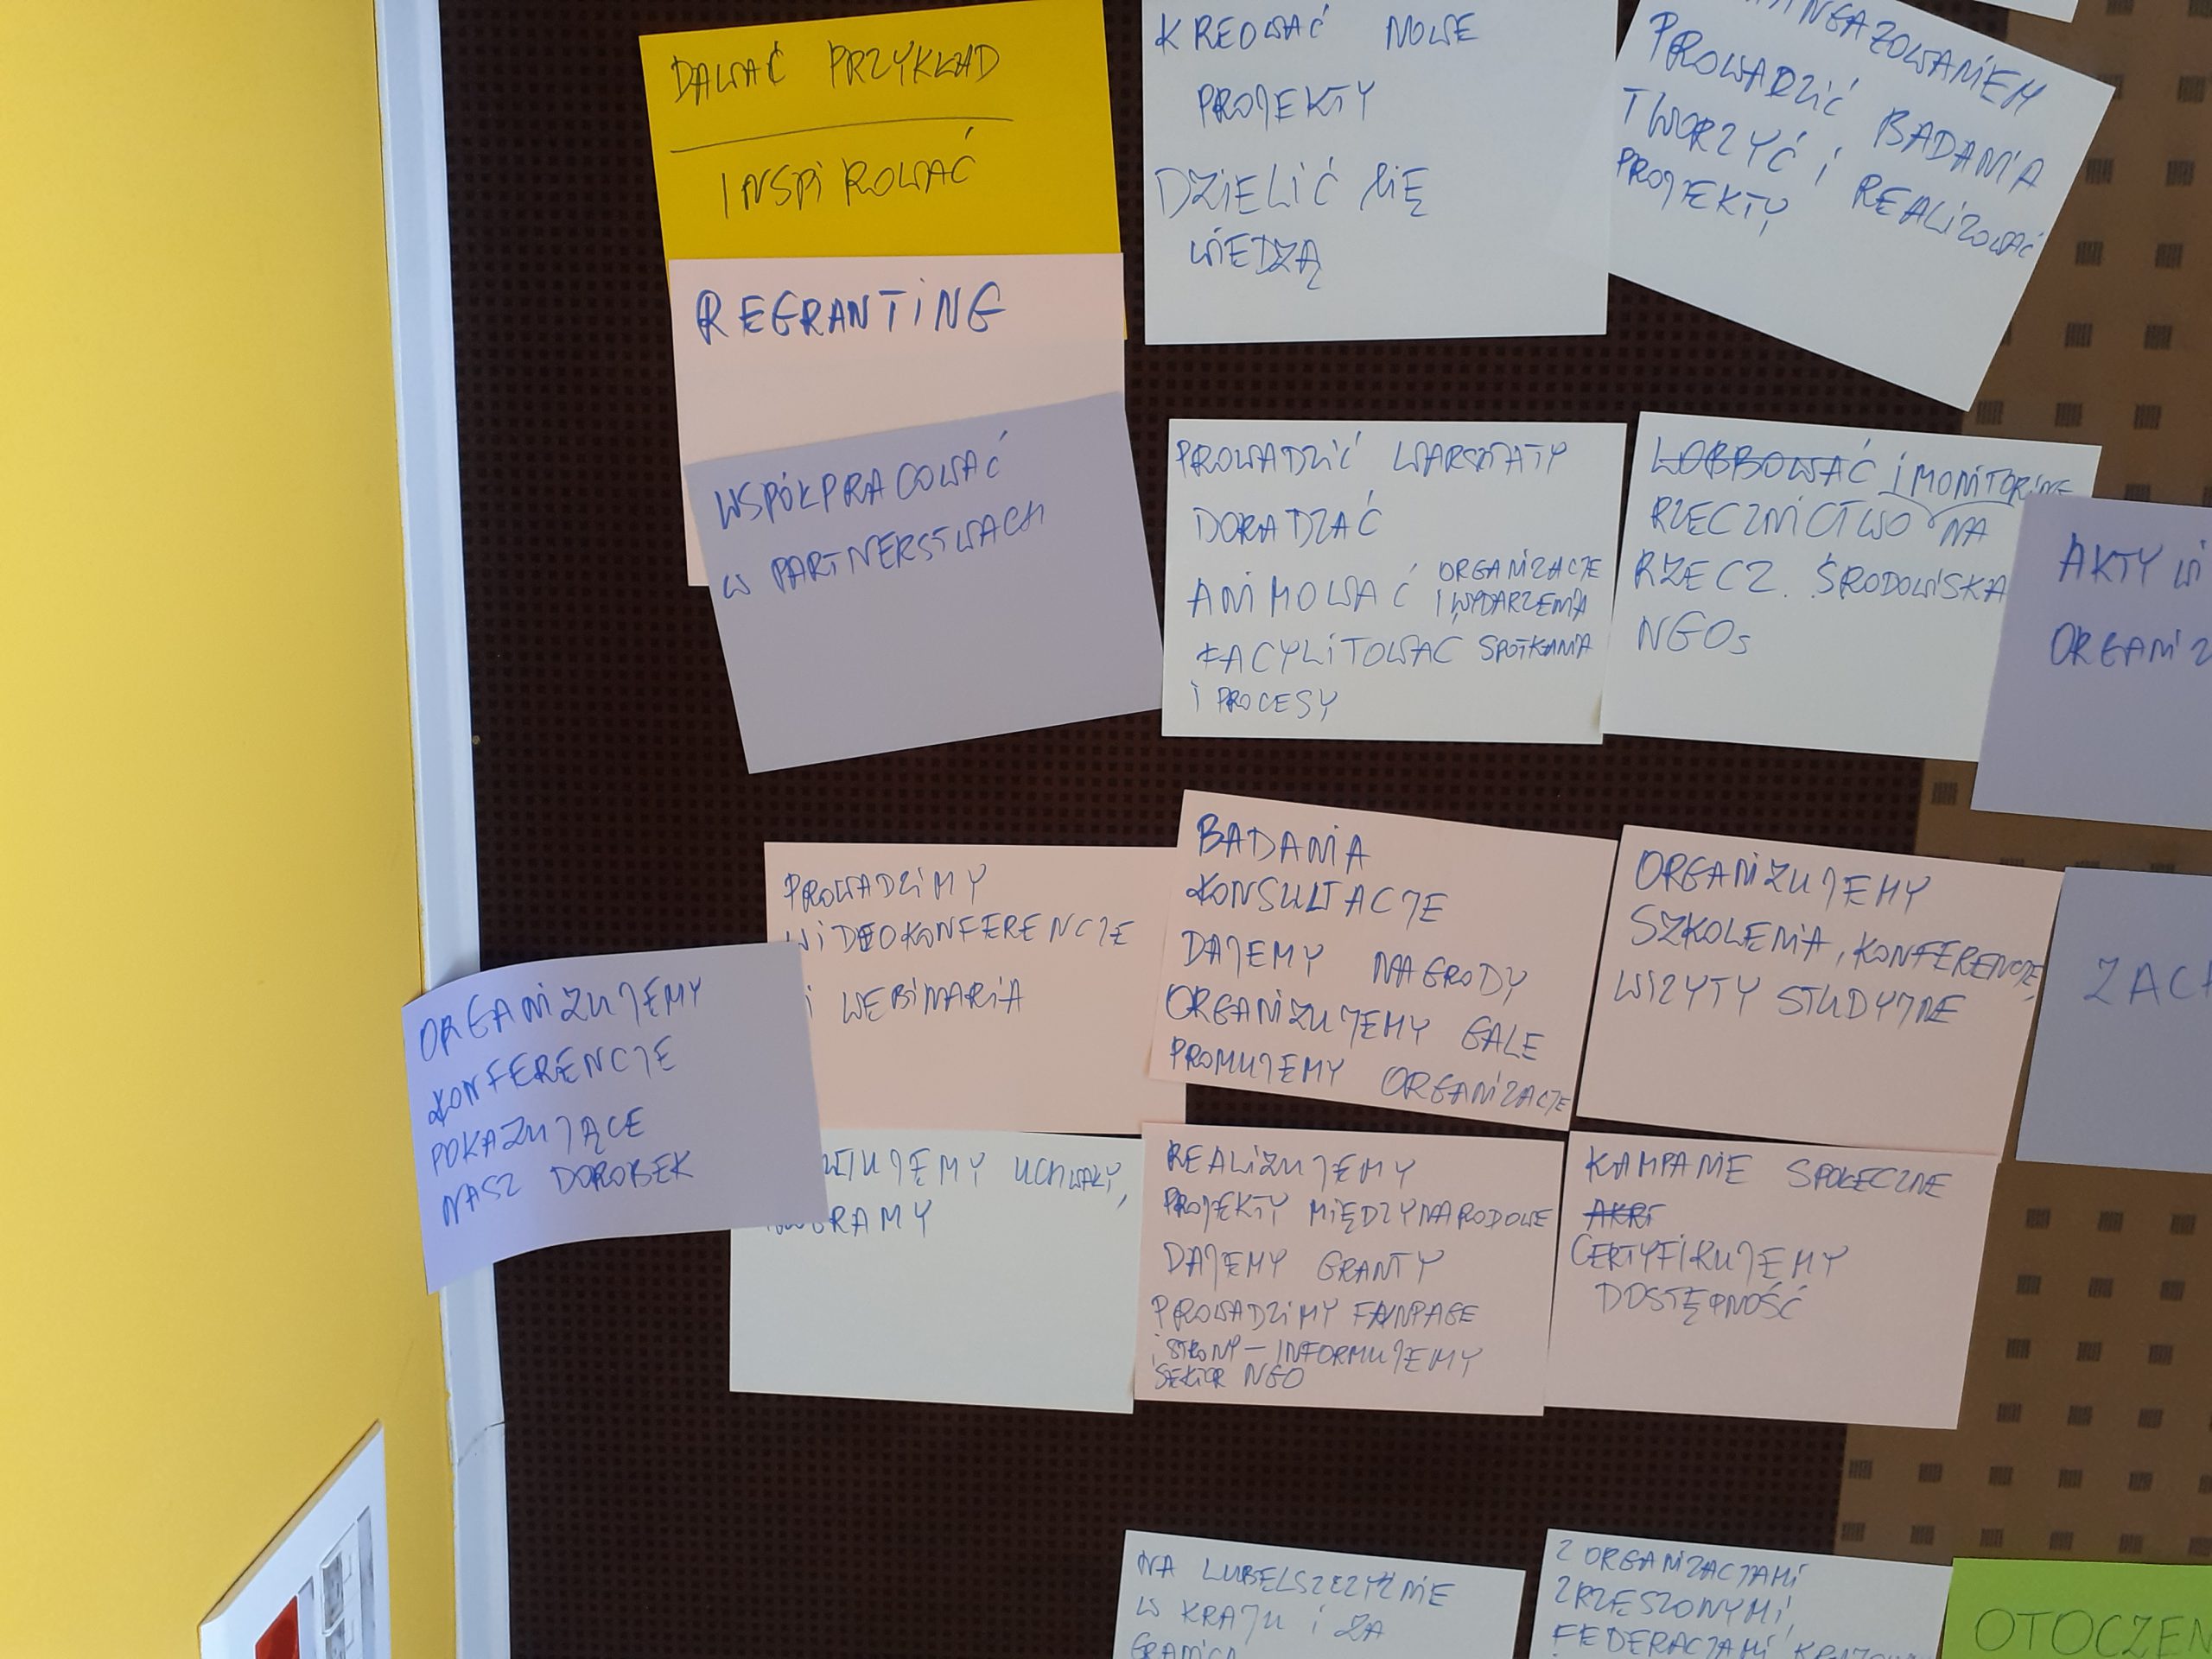 DAWAĆ PRZYKŁAD
INSPIROWAĆ
KREOWAĆ NOWE
PROJEKTY
DZIELIĆ SIĘ
WIEDZĄ
PROWADZIĆ BADANIA
TWORZYĆ I REALIZOWAĆ
PROJEKTY
REGRANTING
WSPÓŁPRACOWAĆ
W PARTNERSTWACH
PROWADZIĆ WARSZTATY
DORADZAĆ
ANIMOWAĆ ORGANIZACJE
I WYDARZENIA
FACYLITOWAĆ SPOTKANIA
I PROCESY
LOBBOWAĆ I MONITORING
RZECZNICTWO NA
RZECZ. ŚRODOWISKA
NGOs
AKTYWI
ORGANIZ
PROWADZIMY
WIDEOKONFERENCJE
I WEBINARIA
BADANIA
KONSULTACJE
DAJEMY NAGRODY
ORGANIZUJEMY GALE
PROMUJEMY ORGANIZACJE
ORGANIZUJEMY
SZKOLENIA, KONFERENCJE,
WIZYTY STUDYJNE
ZACH
ORGANIZUJEMY
KONFERENCJE
POKAZUJĄCE
NASZ DOROBEK
UCHWAŁY,
GRAMY
REALIZUJEMY
PROJEKTY MIĘDZYNARODOWE
DAJEMY GRANTY
PROWADZIMY FANPAGE
I STRONY - INFORMUJEMY
SEKTOR NGO
KAMPANIE SPOŁECZNE
CERTYFIKUJEMY
DOSTĘPNOŚĆ
NA LUBELSZCZYŹNIE
W KRAJU I ZA
GRANICĄ
Z ORGANIZACJAMI
ZRZESZONYMI,
FEDERACJAMI
OTOCZEN